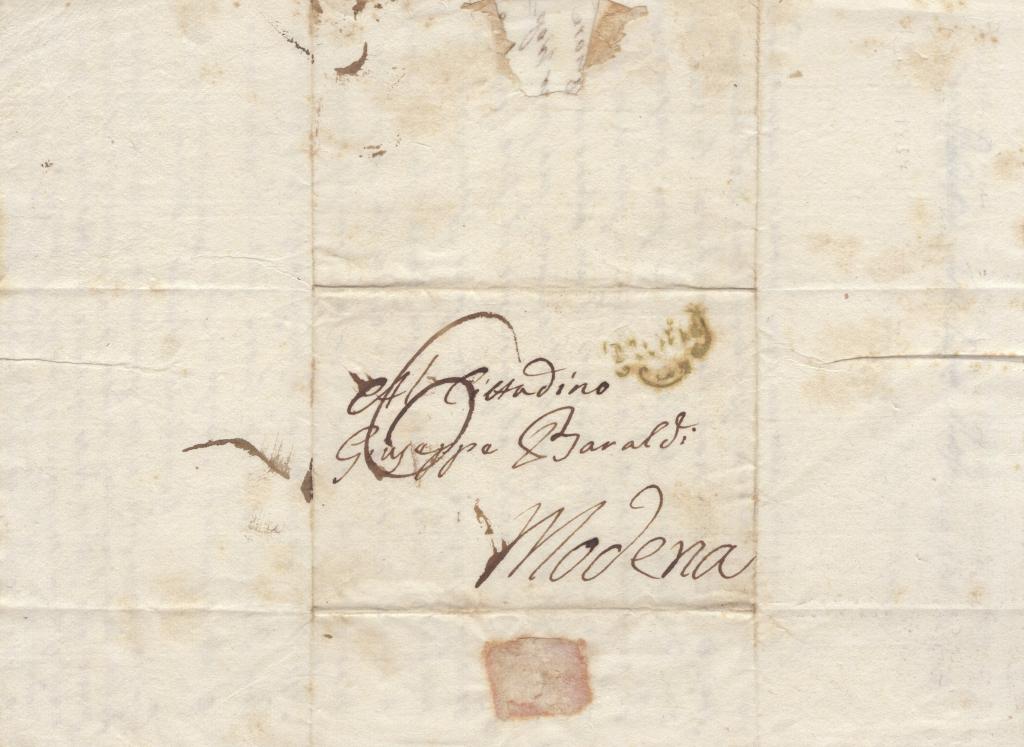 6
Al Cittadino
Giuseppe Baraldi
Modena